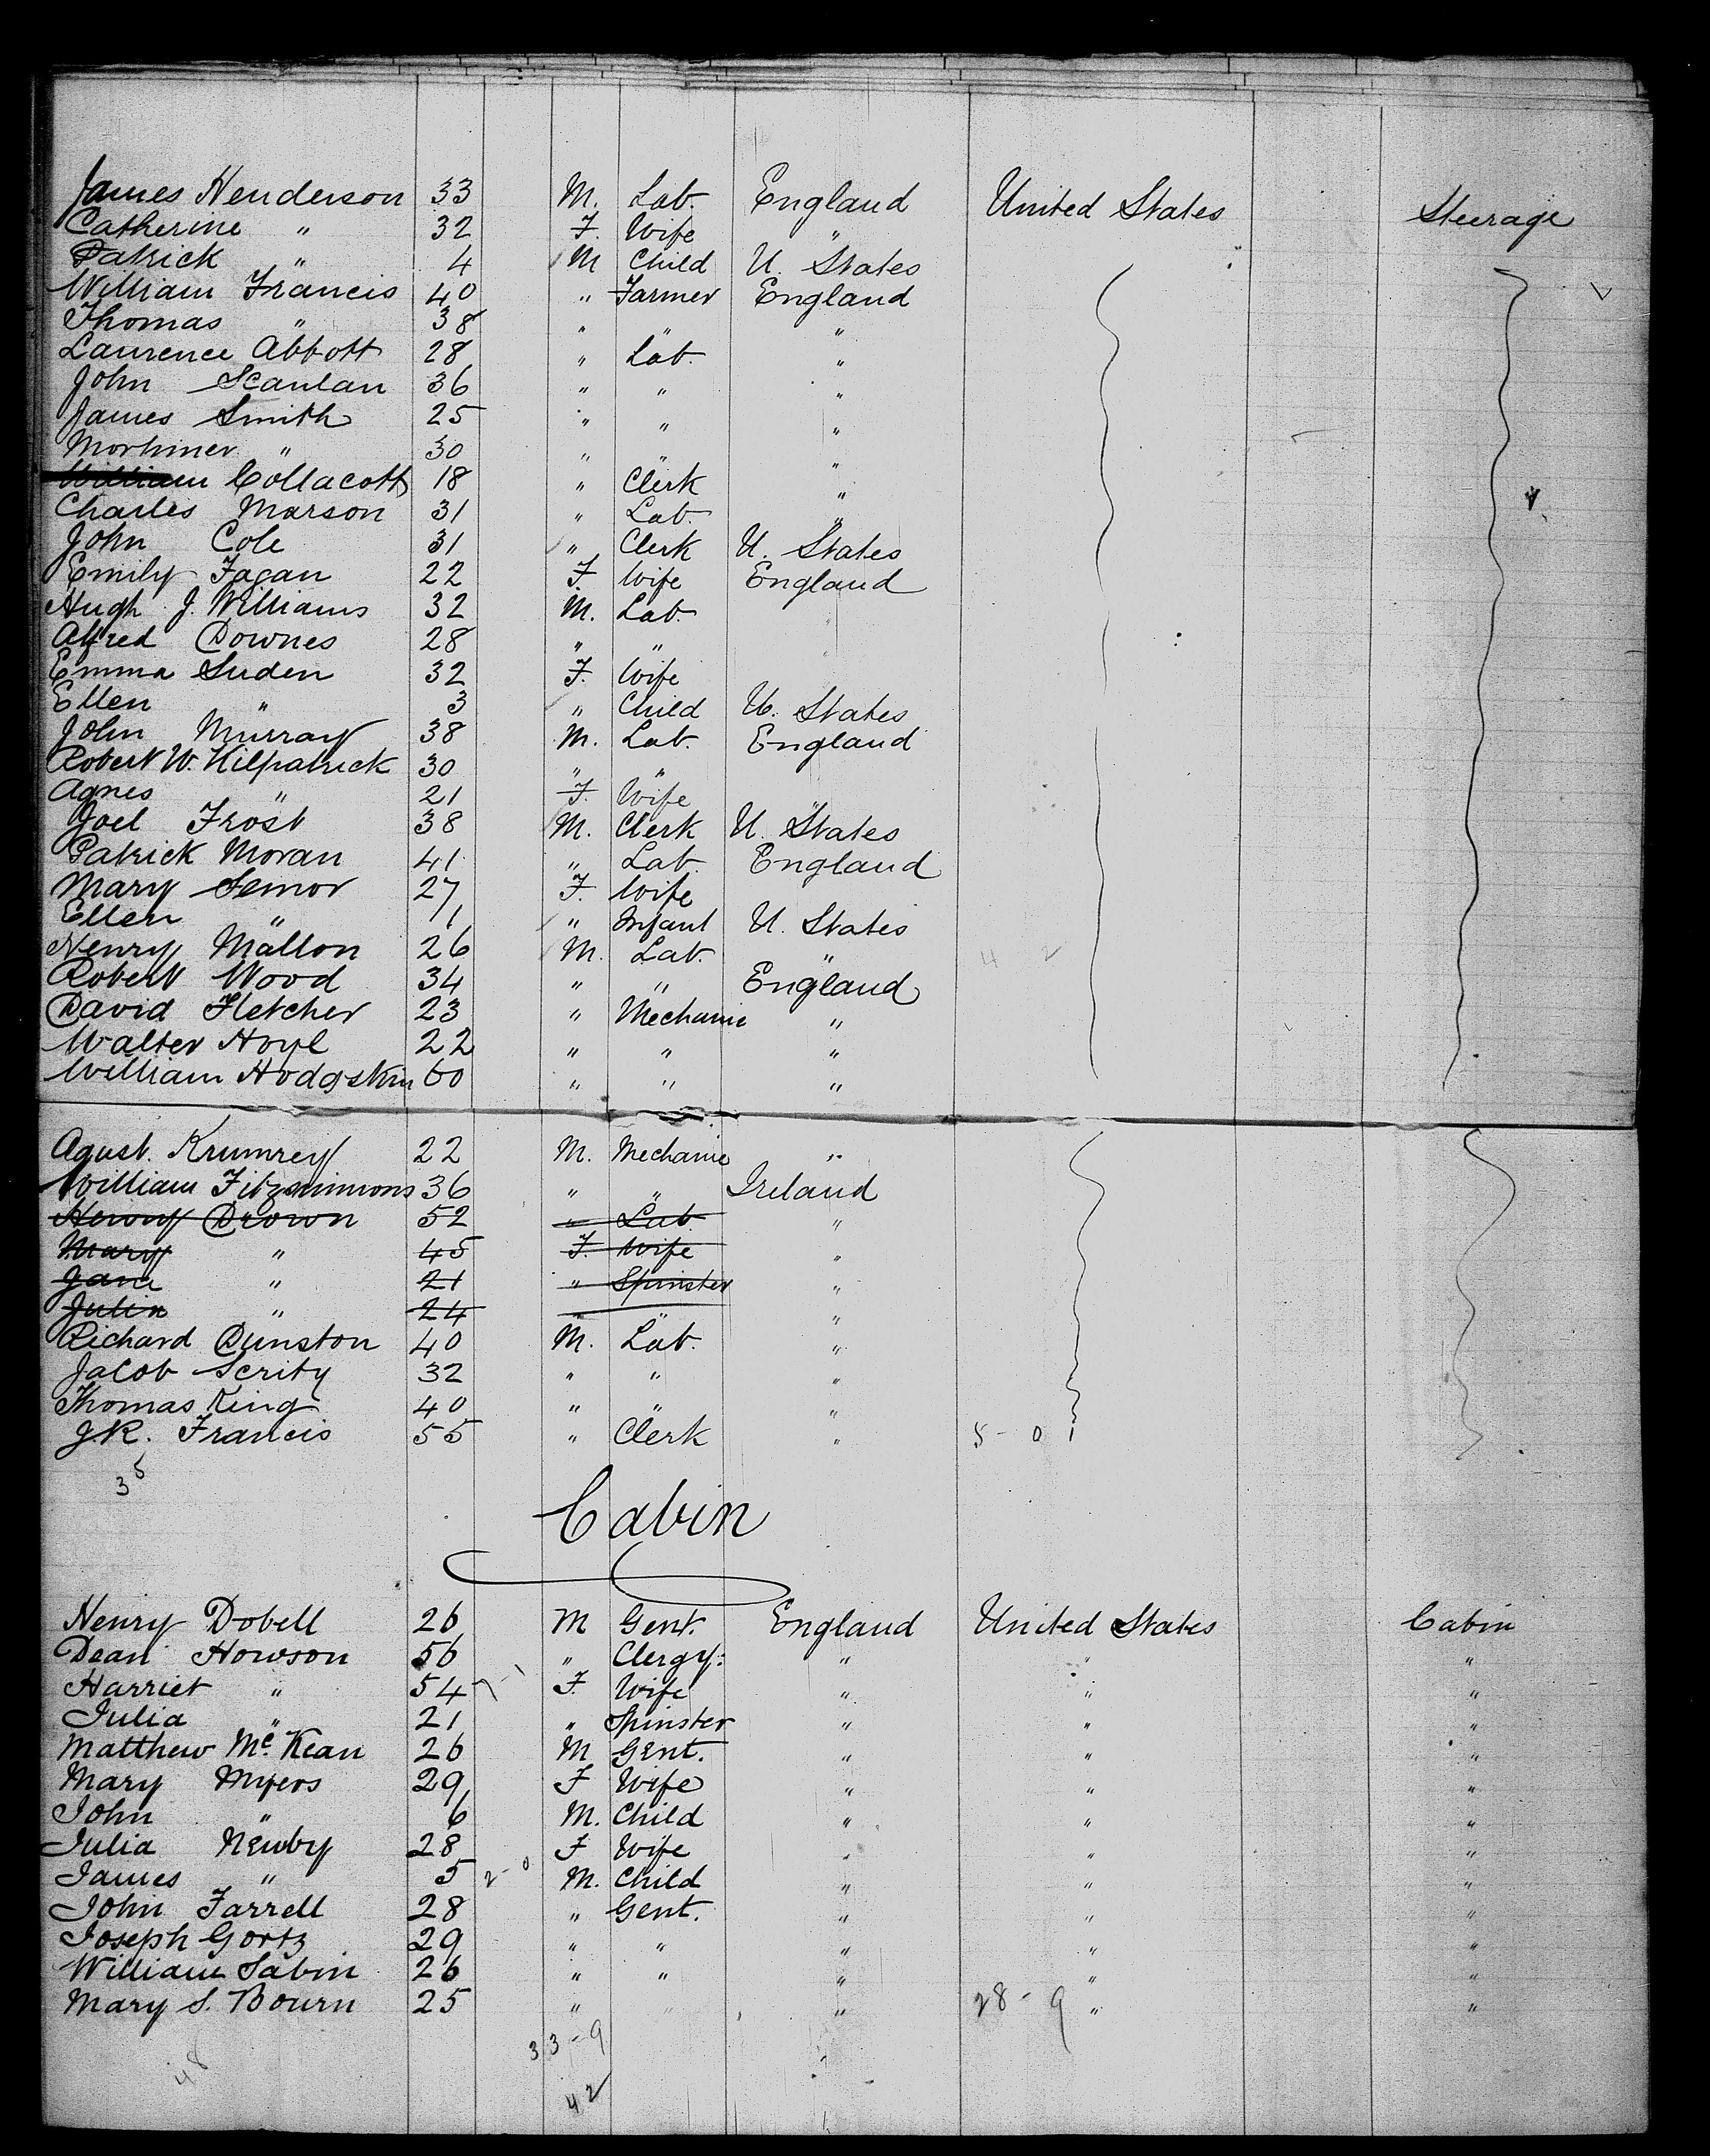 James Henderson 33 M. Lab. England United States Steerage
Catherine " 32 F. Wife "
Patrick " 4 M Child U. States
William Francis 40 " Farmer England
Thomas " 38 " " "
Laurence Abbott 28 " Lab. "
John Scanlan 36 " " "
James Smith 25 " " "
Mortimer " 30 " " "
William Collacott 18 " Clerk "
Charles Marson 31 " Lab. "
John Cole 31 " Clerk U. States
Emily Fagan 22 F. Wife England
Hugh J. Williams 32 M. Lab. "
Alfred Downes 28 " " "
Emma Suden 32 F. Wife
Ellen " 3 " Child U. States
John Murray 38 M. Lab. England
Robert W. Kilpatrick 30 " "
Agnes " 21 F. Wife
Joel Frost 38 M. Clerk U. States
Patrick Moran 41 " Lab. England
Mary Semor 27 F. Wife
Ellen " 1 " Infant U. States
Henry Mallon 26 M. Lab. " 4 2
Robert Wood 34 " " England
David Fletcher 23 " Mechanic "
Walter Hoyl 22 " " "
William Hodgskin 60 " " "
Agust. Krumrey 22 M. Mechanic "
William Fitzsimmons 36 " " Ireland
Henry Brown 52 " Lab "
Mary " 45 F. Wife "
Jane " 21 " Spinster "
Julia " 24 " "
Richard Dunston 40 M. Lab. "
Jacob Scrity 32 " " "
Thomas King 40 " " "
J.R. Francis 55 " Clerk " 5 - 0 1
35
Cabin
Henry Dobell 26 M Gent. England United States Cabin
Dean Howson 56 " Clergy: " " "
Harriet " 54 7-1 F. Wife " " "
Julia " 21 " Spinster " " "
Matthew Mc. Kean 26 M Gent. " " "
Mary Myers 29 F Wife " " "
John " 6 M. Child " " "
Julia Newby 28 F Wife " " "
James " 5 2-0 M. Child " " "
John Farrell 28 " Gent. " " "
Joseph Gortz 29 " " " " "
William Sabin 26 " " " " "
Mary S. Bourn 25 " " " 28 - 9 " "
33-9
48
42